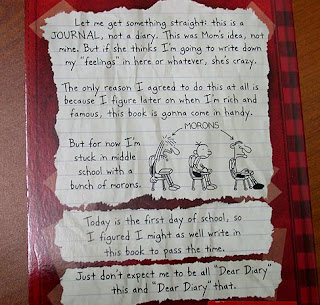 Let me get something straight: this is a
JOURNAL, not a diary. This was Mom's idea, not
mine. But if she thinks I'm going to write down
my "feelings" in here or whatever, she's crazy.
The only reason I agreed to do this at all is
because I figure later on when I'm rich and
famous, this book is gonna come in handy.
MORONS
But for now I'm
stuck in middle
school with a
bunch of morons.
Today is the first day of school, so
I figured I might as well write in
this book to pass the time.
Just don't expect me to be all "Dear Diary"
this and "Dear Diary" that.